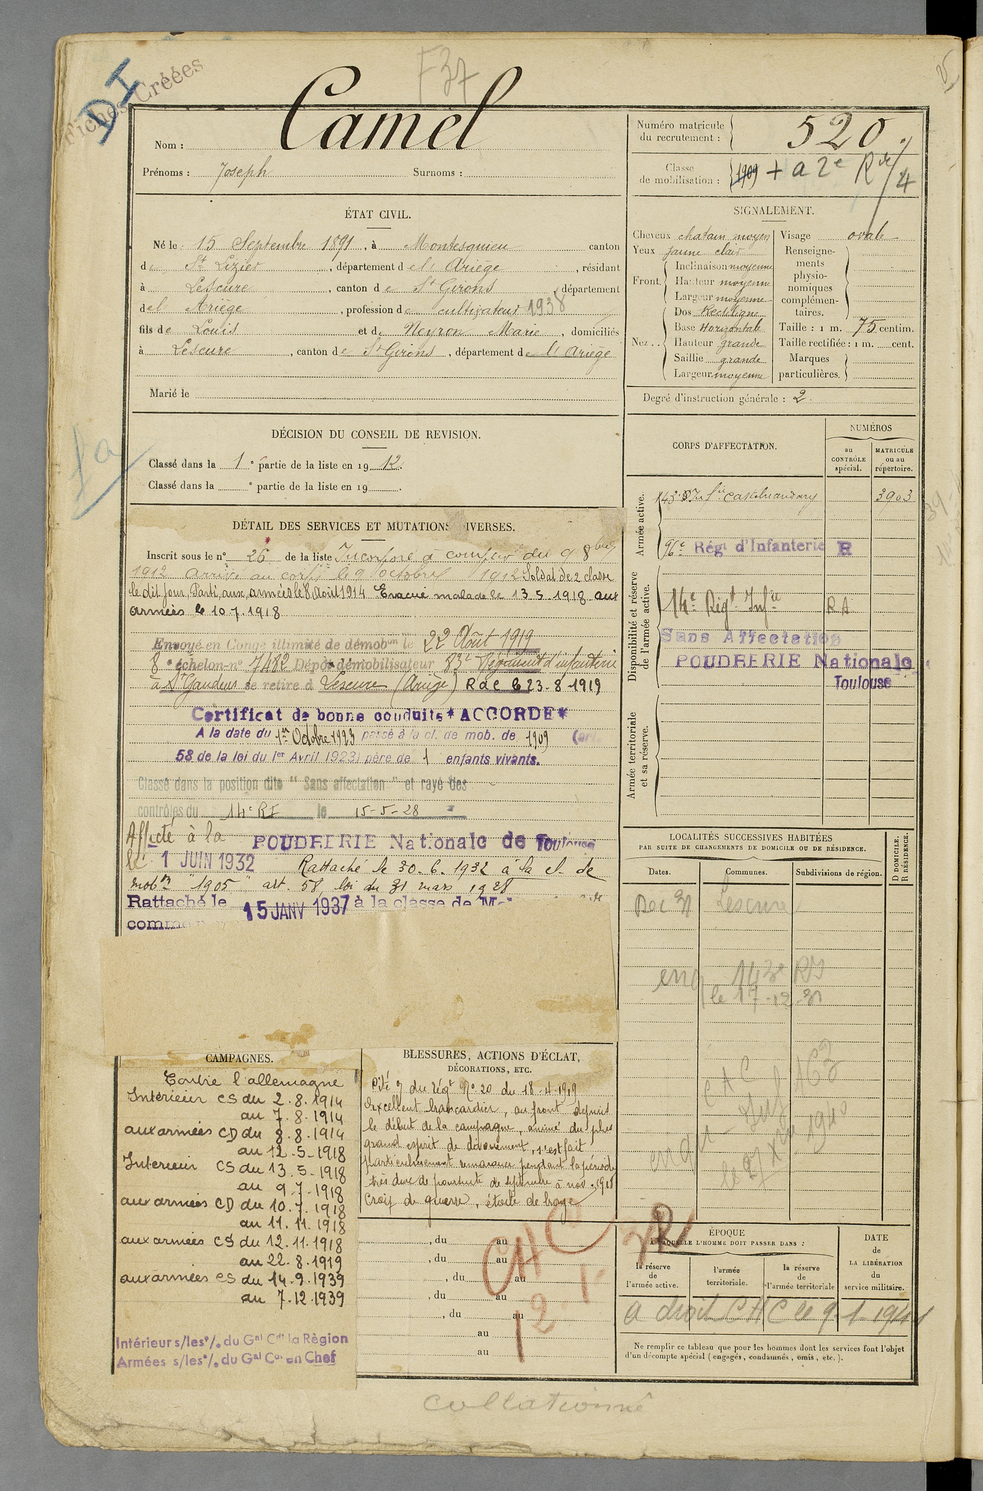 Fiches Créées
DI
F37
Nom : Camel
Prénoms : Joseph Surnoms :
Numéro matricule du recrutement : 520
Classe de mobilisation : 1909 + a 2e Rve/4
ÉTAT CIVIL.
Né le 15 Septembre 1891, à Montesquieu canton
de St Lizier, département de l'Ariège, résidant
à Lescure, canton de St Girons département
de l'Ariège, profession de cultivateur 1938
fils de Louis et de Neyron Marie, domiciliés
à Lescure, canton de St Girons, département de l'Ariège
Marié le
SIGNALEMENT.
Cheveux chatain moyen
Yeux jaune clair
Front. Inclinaison moyenne
Hauteur moyenne
Largeur moyenne
Nez... Dos Rectiligne
Base Horizontale
Hauteur grande
Saillie grande
Largeur moyenne
Visage ovale
Renseignements physionomiques complémentaires.
Taille : 1 m. 75 centim.
Taille rectifiée : 1 m. cent.
Marques particulières.
Degré d'instruction générale : 2
DÉCISION DU CONSEIL DE REVISION.
Classé dans la 1e partie de la liste en 1912.
Classé dans la e partie de la liste en 19 .
DÉTAIL DES SERVICES ET MUTATIONS DIVERSES.
Inscrit sous le n° 26 de la liste Incorporé à compter du 9 8bre
1912 arrivé au corps le 9 octobre 1912 Soldat de 2 classe
le dit jour. Parti aux armées le 8 Août 1914 Evacué malade le 13.5.1918 aux
armées le 10.7.1918
Envoyé en Congé illimité de démobon le 22 Août 1919
8e échelon n° 7482 Dépôt démobilisateur 83e Régiment d'infanterie
à St Gaudens se retire à Lescure (Ariège) R d C le 23-8-1919
Certificat de bonne conduite *ACCORDÉ*
A la date du 1er Octobre 1923 passé à la cl. de mob. de 1909 (art.
58 de la loi du 1er Avril 1923) père de 1 enfants vivants.
Classé dans la position dite " Sans affectation " et rayé des
contrôles du 14e RI le 15-5-28
Affecté à la POUDRERIE Nationale de Toulouse
le 1 JUIN 1932 Rattaché le 30.6.1932 à la cl. de
mobon "1905" art. 58 loi du 31 mars 1928
Rattaché le 15 JANV 1937 à la classe de
CORPS D'AFFECTATION.
NUMÉROS
au CONTRÔLE spécial.
MATRICULE ou au répertoire.
Armée active.
143e Rt. d'Ie Castelnaudary 3903
96e Régt d'Infanterie R
Disponibilité et réserve de l'armée active.
14e Rigt Infie RA
Sans Affectation
POUDRERIE Nationale
Toulouse
Armée territoriale et sa réserve.
LOCALITÉS SUCCESSIVES HABITÉES
PAR SUITE DE CHANGEMENTS DE DOMICILE OU DE RÉSIDENCE.
Dates.
Communes.
Subdivisions de région.
D DOMICILE.
R RÉSIDENCE.
Rec 31 Lescure
143e RI
le 17-12-31
CAMPAGNES.
Contre l'allemagne
Intérieur CS du 2.8.1914
au 7.8.1914
aux armées CD du 8.8.1914
au 12.5.1918
Intérieur CS du 13.5.1918
au 9.7.1918
aux armées CD du 10.7.1918
au 11.11.1918
aux armées CS du 12.11.1918
au 22.8.1919
aux armées CS du 14.9.1939
au 7.12.1939
Intérieur s/les o/. du Gal Ct la Région
Armées s/les o/. du Gal Ct en Chef
BLESSURES, ACTIONS D'ÉCLAT,
DÉCORATIONS, ETC.
Cité O/ du régt No 20 du 18.4.1919
Excellent brancardier, au front depuis
le début de la campagne, animé du plus
grand esprit de dévouement, s'est fait
particulièrement remarquer pendant la période
très dure de poursuite de septembre à nov. 1918
Croix de guerre, étoile de bronze
, du au
, du au
, du au
, du au
, du au
au
au
CHC
ÉPOQUE
A LAQUELLE L'HOMME DOIT PASSER DANS :
la réserve de l'armée active.
l'armée territoriale.
la réserve de l'armée territoriale
DATE de LA LIBÉRATION du service militaire.
a droit CHC le 9-1-1941
Ne remplir ce tableau que pour les hommes dont les services font l'objet
d'un décompte spécial (engagés, condamnés, omis, etc.).
collationné